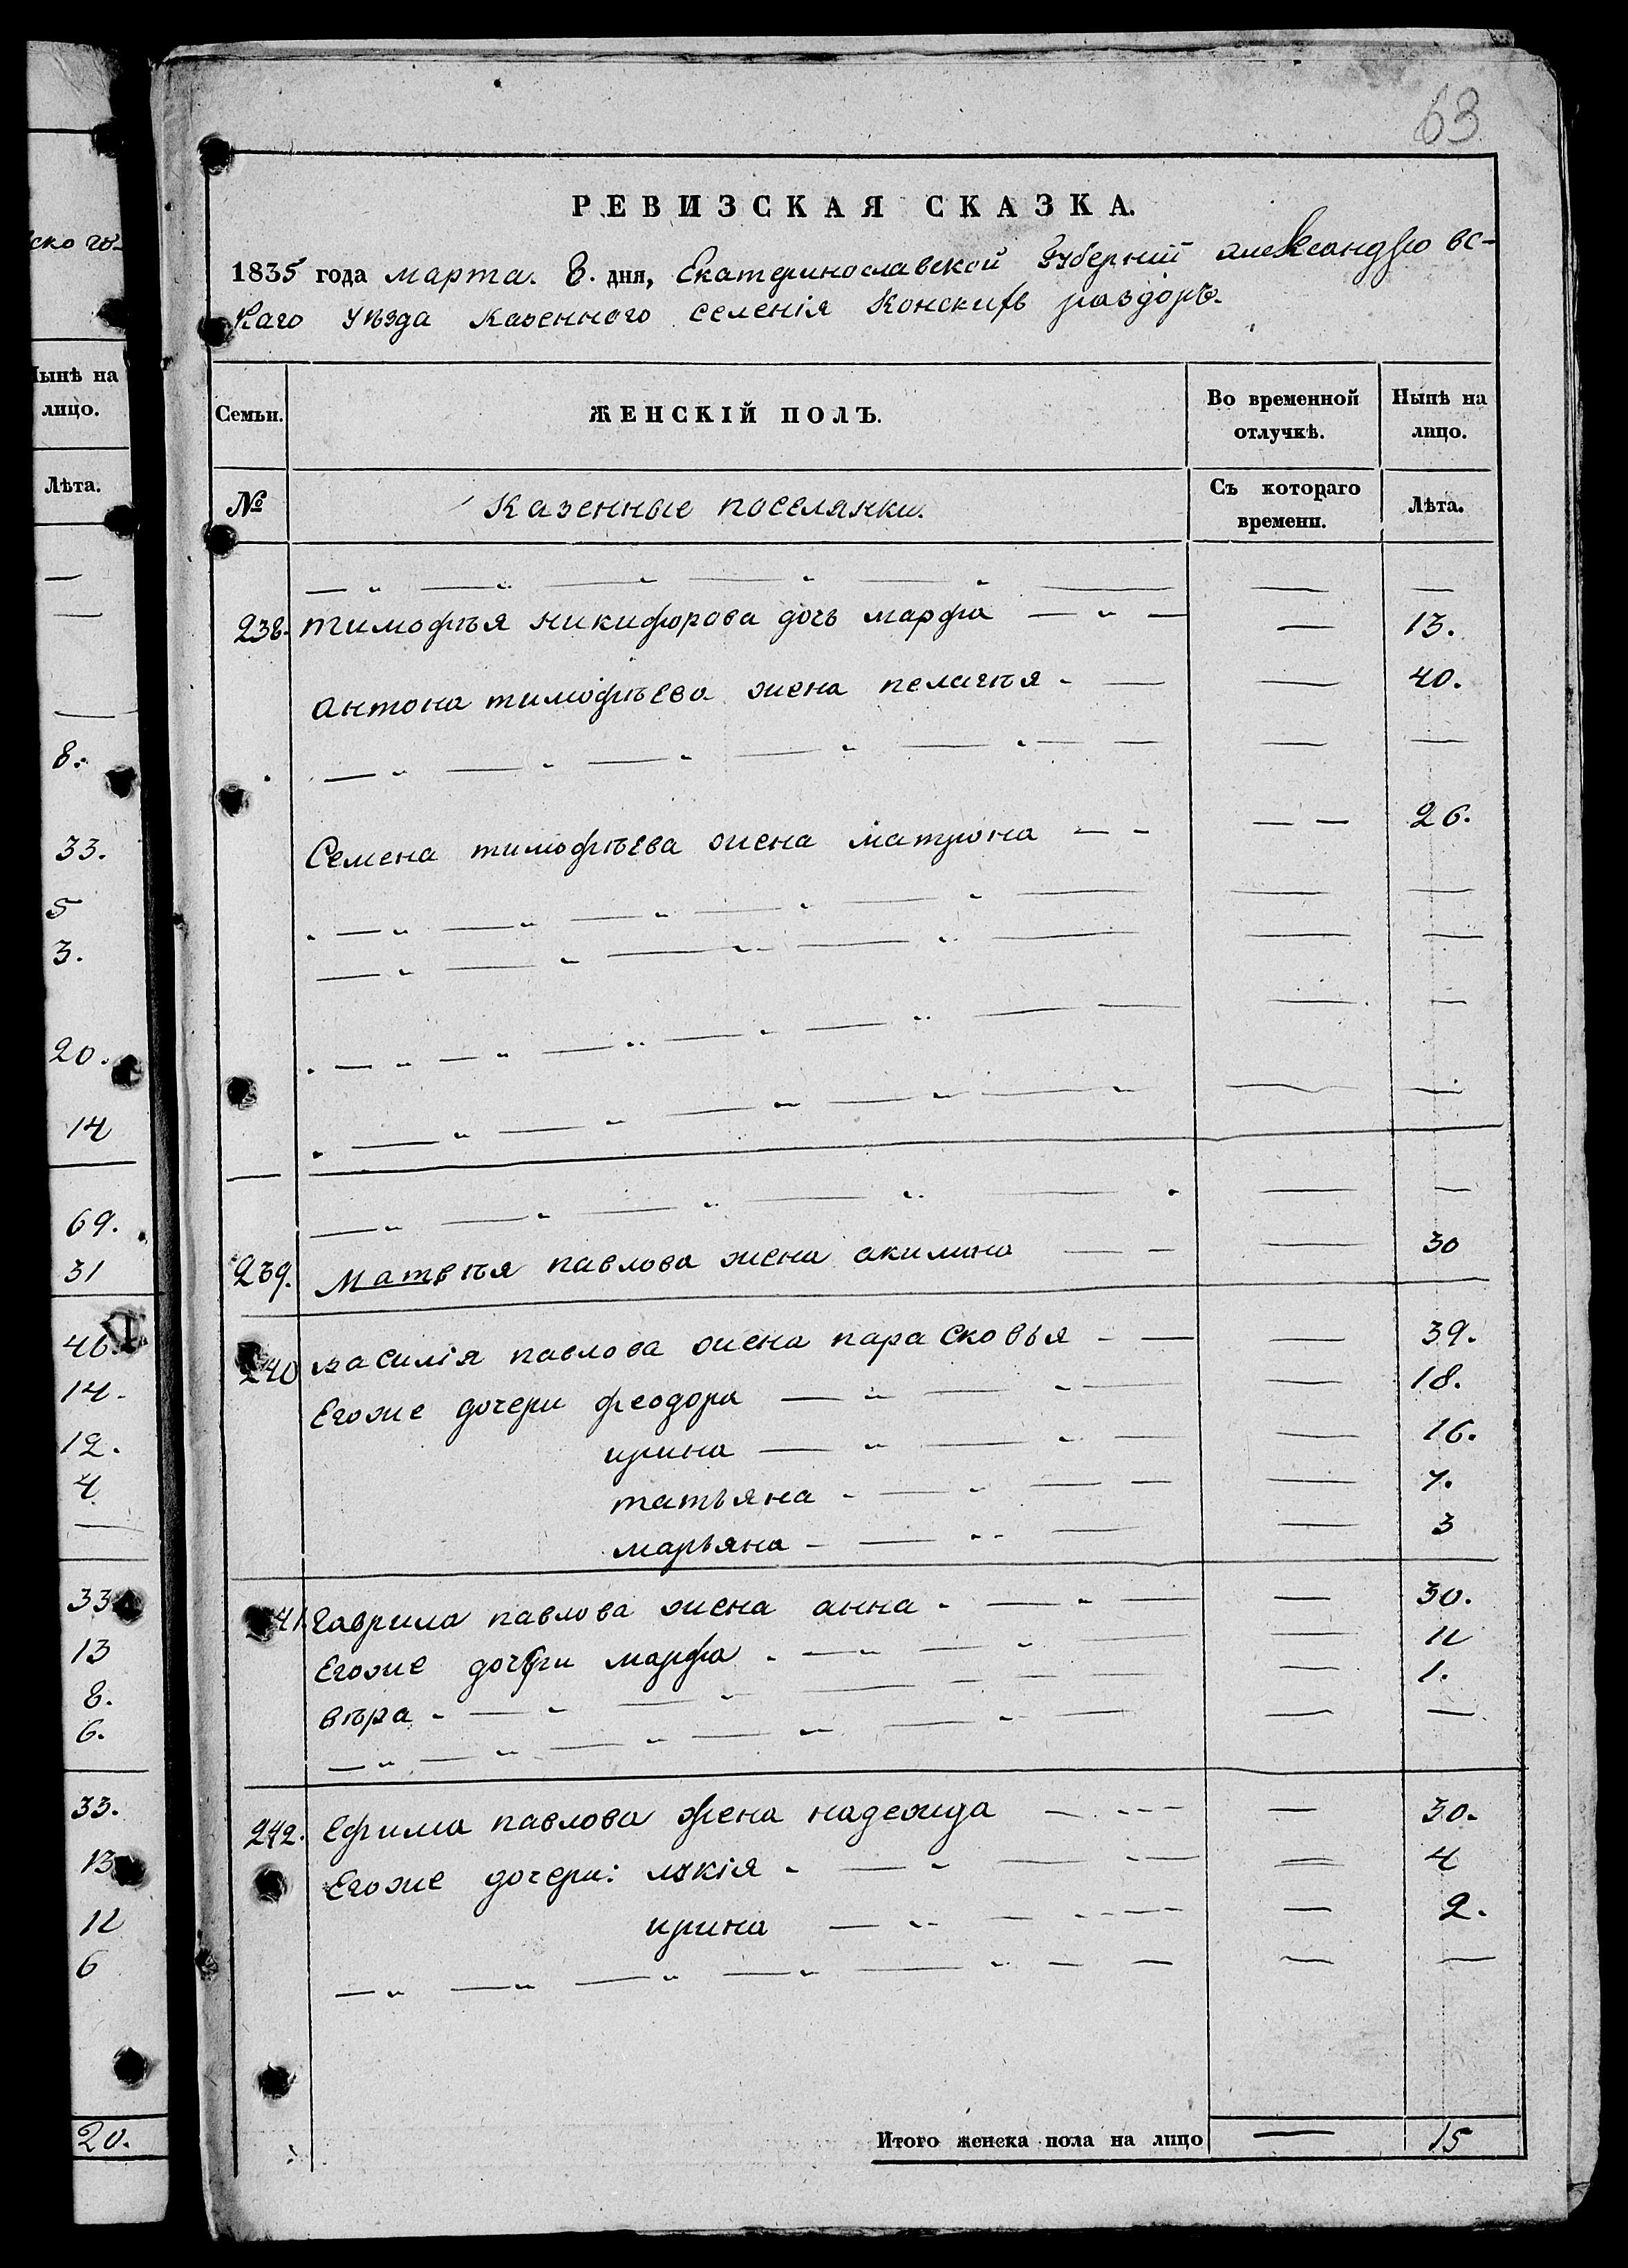 63
РЕВИЗСКАЯ СКАЗКА.
1835 года марта. 8. дня, Екатеринославской Губерніи александровс-
каго уѣзда казенного селенія Конскихъ раздоръ.
Семьи. ЖЕНСКІЙ ПОЛЪ. Во временной отлучкѣ. Нынѣ на лицо.
№ Казенные поселянки. Съ котораго времени. Лѣта.
238. тимофѣя никифорова дочь марфа — 13.
антона тимофѣева жена пелагѣя — 40.
Семена тимофѣева жена матрона — 26.
239. Матвѣя павлова жена акилина — 30
240 василія павлова жена парасковья — 39.
Егоже дочери феодора — 18.
ирина — 16.
татьяна — 7.
марьяна — 3
241. гаврила павлова жена анна — 30.
Егоже дочери марфа — 11
вѣра — 1.
242. Ефима павлова жена надежда — 30.
Егоже дочери: лукія — 4
ирина — 2.
Итого женска пола на лицо — 15
ско го-
Нынѣ на
лицо.
Лѣта.
8.
33.
5
3.
20.
14
69.
31
46.
14.
12.
4
33
13
8.
6.
33.
13
11
6
20.